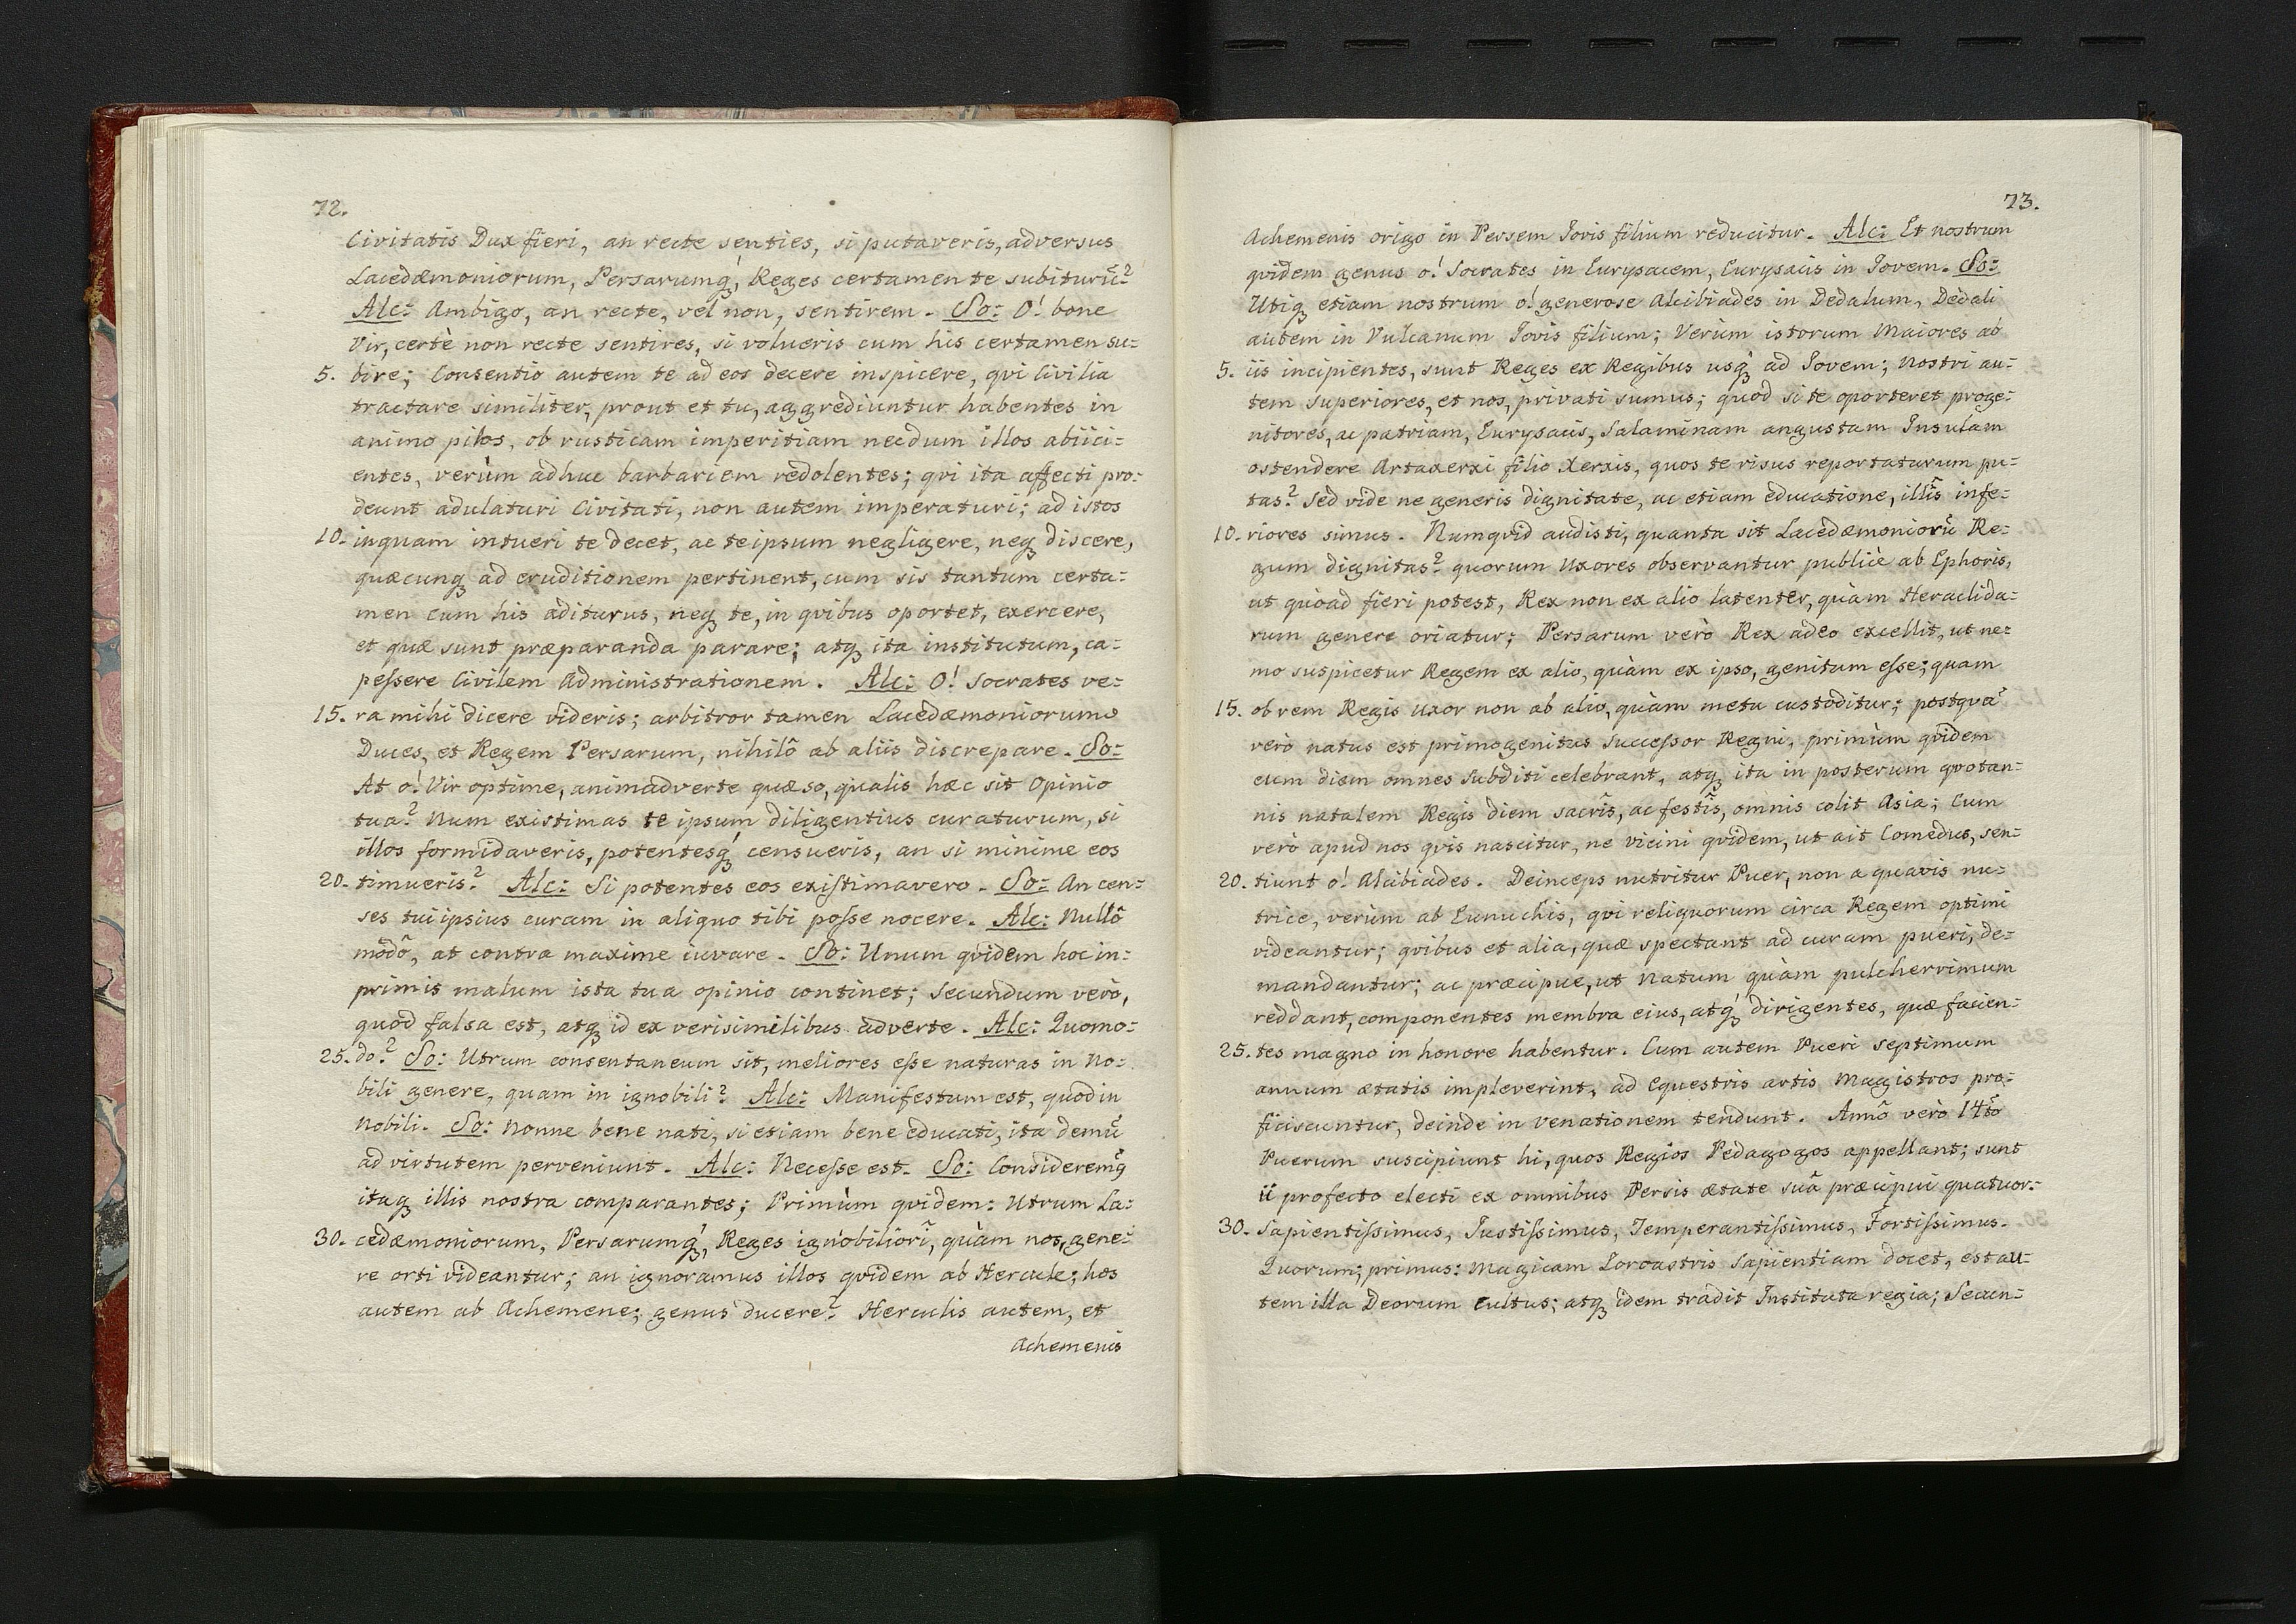 72.
Civitatis Dux fieri, an recte senties, si putaveris, adversus
Lacedæmoniorum, Persarumq́, Reges certamen te subiturũ?
Alc: Ambigo, an recte, vel non, sentirem. So: O! bone
Vir, certè non recte sentires, si volueris cum his certamen su=
5. bire; Consentio autem te ad eos decere inspicere, qvi Civilia
tractare similiter, prout et tu, aggrediuntur habentes in
animo pilos, ob rusticam imperitiam necdum illos abiici=
entes, verùm adhuc barbariem redolentes; qvi ita affecti pro=
deunt adulaturi Civitati, non autem imperaturi; ad istos
10. inquam intueri te decet, ac teipsum negligere, neq̨ discere,
quæcunq̨ ad eruditionem pertinent, cum sis tantum certa=
men cum his aditurus, neq̨ te, in qvibus oportet, exercere,
et quæ sunt præparanda parare; atq̨ ita institutum, ca=
peſsere Civilem Administrationem. Alc: O! Socrates ve=
15. ra mihi dicere videris; arbitror tamen Lacedæmoniorum
Duces, et Regem Persarum, nihilô ab aliis discrepare. So:
At o! Vir optime, animadverte quæso, qualis hæc sit Opinio
tua? Num existimas te ipsum diligentius curaturum, si
illos formidaveris, potentesq́ censueris, an si minime eos
20. timueris? Alc: Si potentes eos exiſtimavero. So: An cen=
ses tui ipsius curam in aliquo tibi poſse nocere. Alc: Nullô
modô, at contra maxime iuvare. So: Unum qvidem hoc in=
primis malum ista tua opinio continet; Secundum verò,
quod falsa est, atq̨ id ex verisimilibus adverte. Alc: Quomo=
25. do? So: Utrum consentaneum sit, meliores eſse naturas in No=
bili genere, quam in ignobili? Alc: Manifestum est, quod in
Nobili. So: Nonne bene nati, si etiam bene educati, ita demũ
ad virtutem perveniunt. Alc: Neceſse est. So: Consideremꝰ
itaq̨ illis nostra comparantes; Primùm qvidem: Utrum La=
30. cedæmoniorum, Persarumq́, Reges ignobiliorî, quàm nos, gene=
re orti videantur; an ignoramus illos qvidem ab Hercule; hos
autem ab Achemene; genus ducere? Herculis autem, et
Achemenis
73.
Achemenis origo in Persem Jovis filium reducitur. Alc: Et nostrum
qvidem genus o! Socrates in Eurysacem, Eurysacis in Jovem. So:
Utiq̨ etiam nostrum o! generose Alcibiades in Dedalum, Dedali
autem in Vulcanum Jovis filium; Verùm istorum Maiores ab
5. iis incipientes, sunt Reges ex Regibus usq́ ad Jovem; Nostri au=
tem superiores, et nos, privati sumus; quod si te oporteret proge=
nitores, ac patriam, Eurysacis, Salaminam angustam Insulam
ostendere Artaxerxi filio Xerxis, quos te risus reportaturum pu=
tas? Sed vide ne generis dignitate, ac etiam educatione, illîs infe=
10. riores simus. Numqvid audisti, quanta sit Lacedæmoniorũ Re=
gum dignitas? quorum Uxores observantur publicè ab Ephoris,
ut quoad fieri potest, Rex non ex alio latenter, quàm Heraclida=
rum genere oriatur; Persarum verò Rex adeo excellit, ut ne=
mo suspicetur Regem ex alio, quàm ex ipso, genitum eſse; quam
15. ob rem Regis Uxor non ab alio, quàm metu custoditur; postqvã
verò natus est primogenitus Succeſsor Regni, primùm qvidem
eum diem omnes Subditi celebrant, atq̨ ita in posterum qvotan=
nis natalem Regis diem sacrîs, ac festîs, omnis colit Asia; Cum
verò apud nos qvis nascitur, ne vicini qvidem, ut ait Comedus, sen=
20. tiunt o! Alcibiades. Deinceps nutritur Puer, non a quavis nu=
trice, verùm ab Eunuchis, qvi reliquorum circa Regem optimi
videantur; qvibus et alia, quæ spectant ad curam pueri, de=
mandantur; ac præcipue, ut Natum quàm pulcherrimum
reddant, componentes membra eius, atq́ dirigentes, quæ facien=
25. tes magno in honore habentur. Cum autem Pueri septimum
annum ætatis impleverint, ad Equestris artis Magistros pro=
ficiscuntur, deinde in venationem tendunt. Annô verò 14tô
Puerum suscipiunt hi, quos Regios Pedagogos appellant; sunt
ii profecto electi ex omnibus Persis ætate suâ præcipui quatuor:
30. Sapientiſsimus, Justiſsimus, Temperantiſsimus, Fortiſsimus.
Quorum; primus: Magicam Zoroastris Sapientiam docet, est au=
tem illa Deorum Cultus; atq̨ idem tradit Instituta regia; Secun=